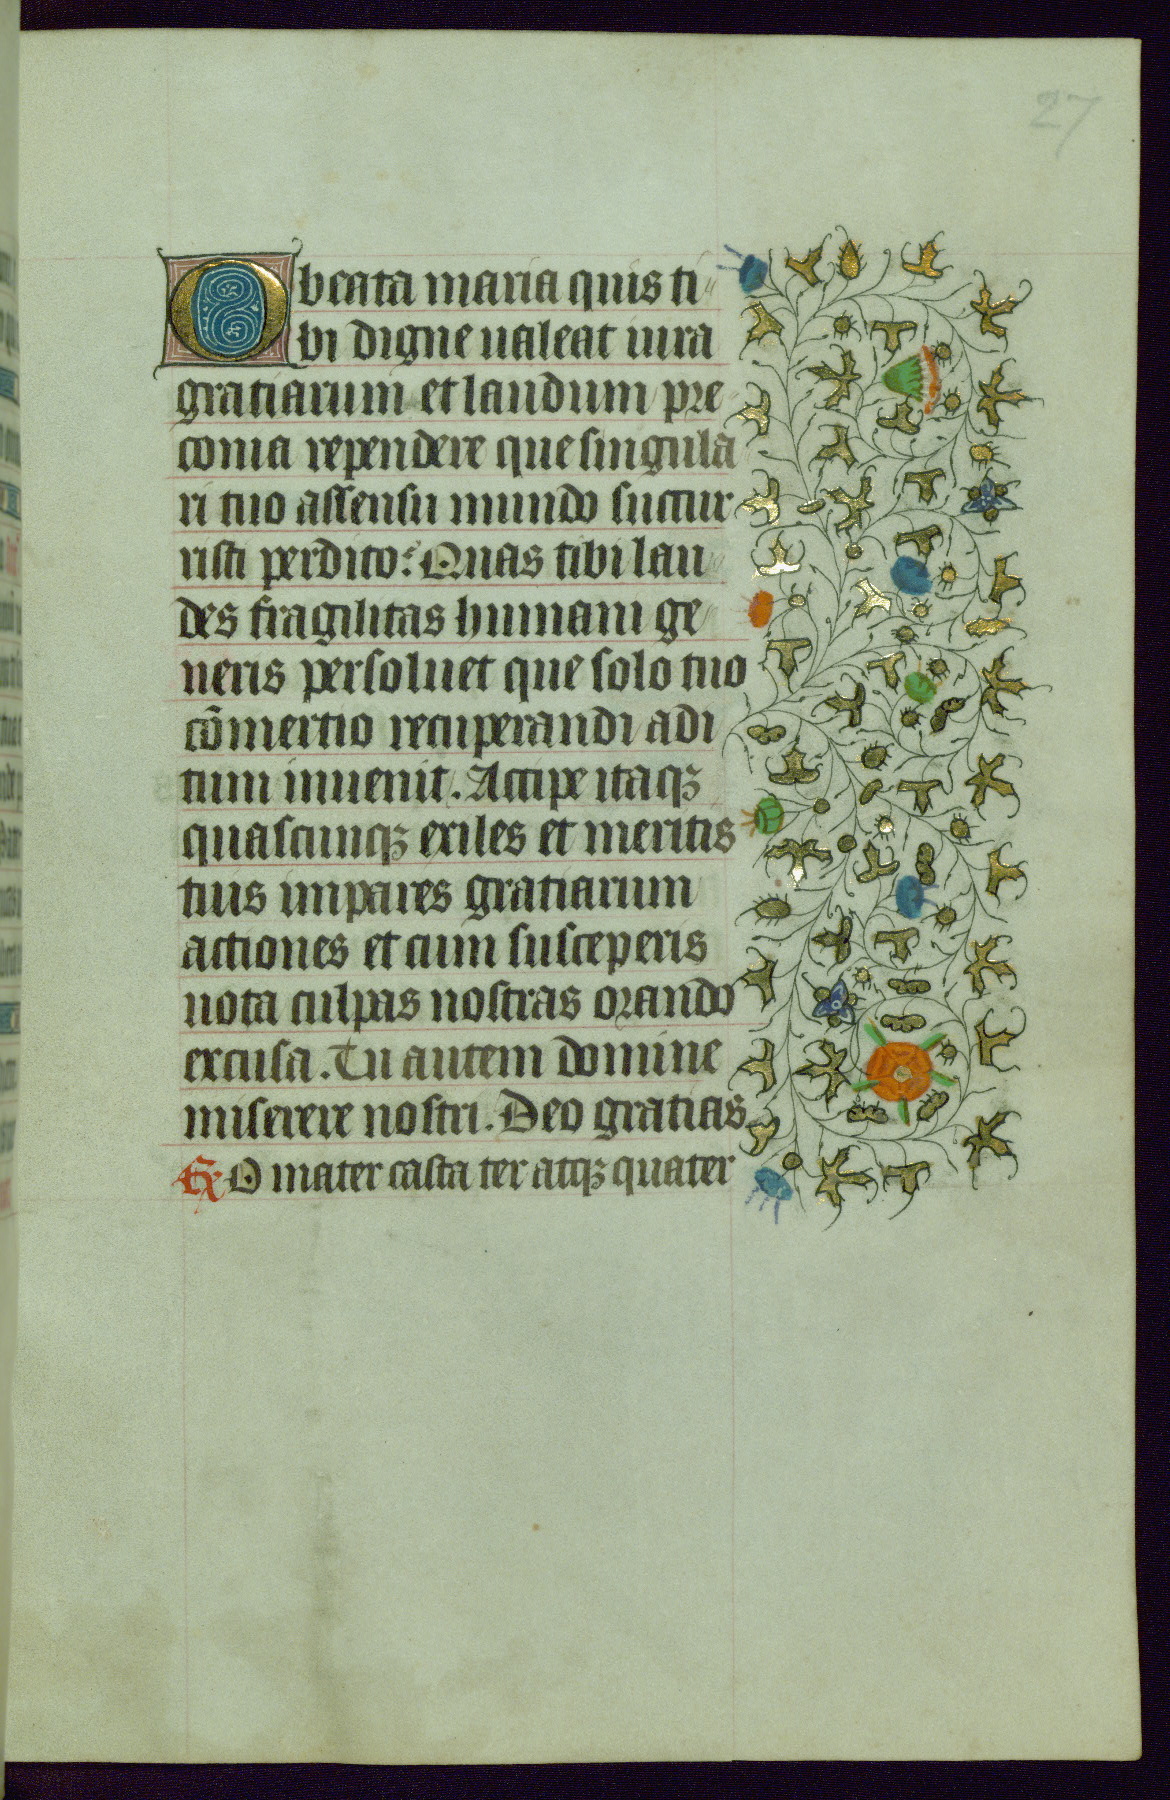 27
O beata maria quis ti
bi digne ualeat iura
gratiarum et laudum pre
conia rependere que singula
ri tuo assensu mundo succur
risti perdito? Quas tibi lau
des fragilitas humani ge
neris persoluet que solo tuo
cōmertio recuperandi adi
tum inuenit. Accipe itaqꝫ
quascunqꝫ exiles et meritis
tuis impares gratiarum
actiones et cum susceperis
uota culpas nostras orando
excusa. Tu autem domine
miserere nostri. Deo gratias
℞ O mater casta ter atqꝫ quater